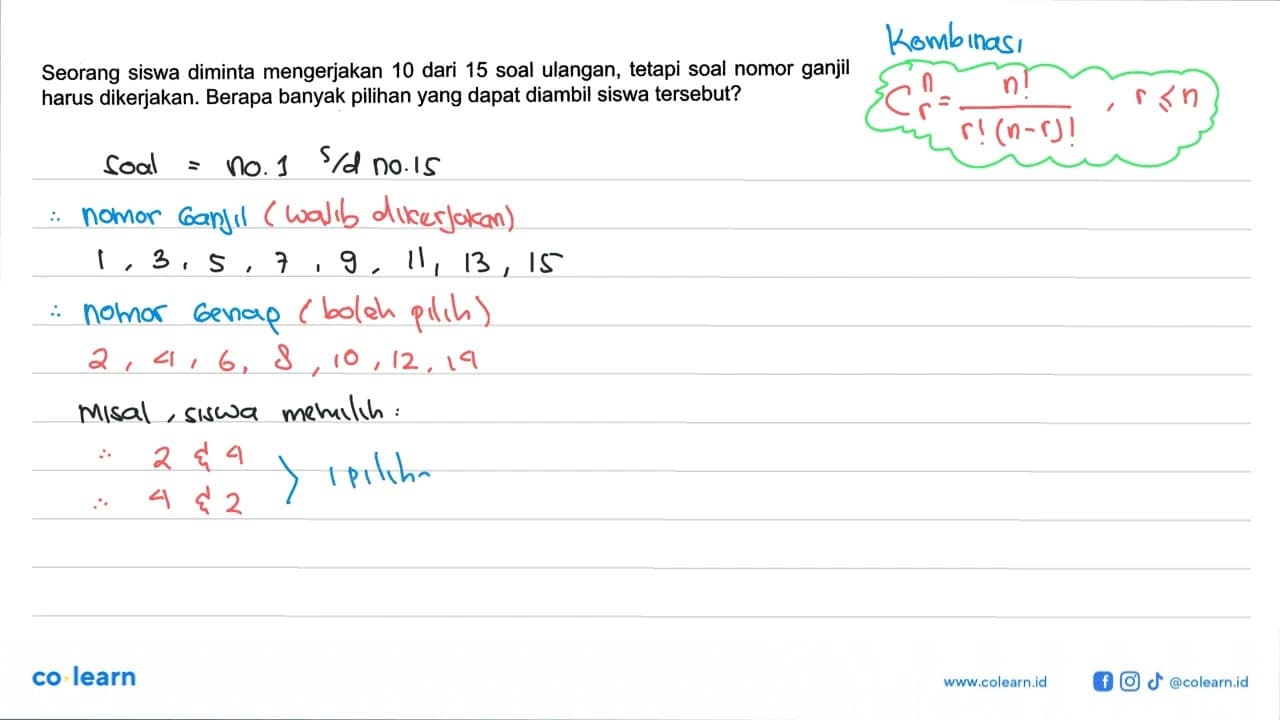 Seorang siswa diminta mengerjakan 10 dari 15 soal ulangan, tetapi soal nomor ganjil
harus dikerjakan. Berapa banyak pilihan yang dapat diambil siswa tersebut?
Kombinasi
C^n_r = n! / r!(n-r)! , r ≤ n
Soal = no. 1 s/d no. 15
∴ nomor Ganjil (wajib dikerjakan)
1, 3, 5, 7, 9, 11, 13, 15
∴ nomor Genap (boleh pilih)
2, 4, 6, 8, 10, 12, 14
Misal, siswa memilih:
∴ 2 & 4
∴ 4 & 2
> 1 pilihan
co·learn
www.colearn.id
@colearn.id